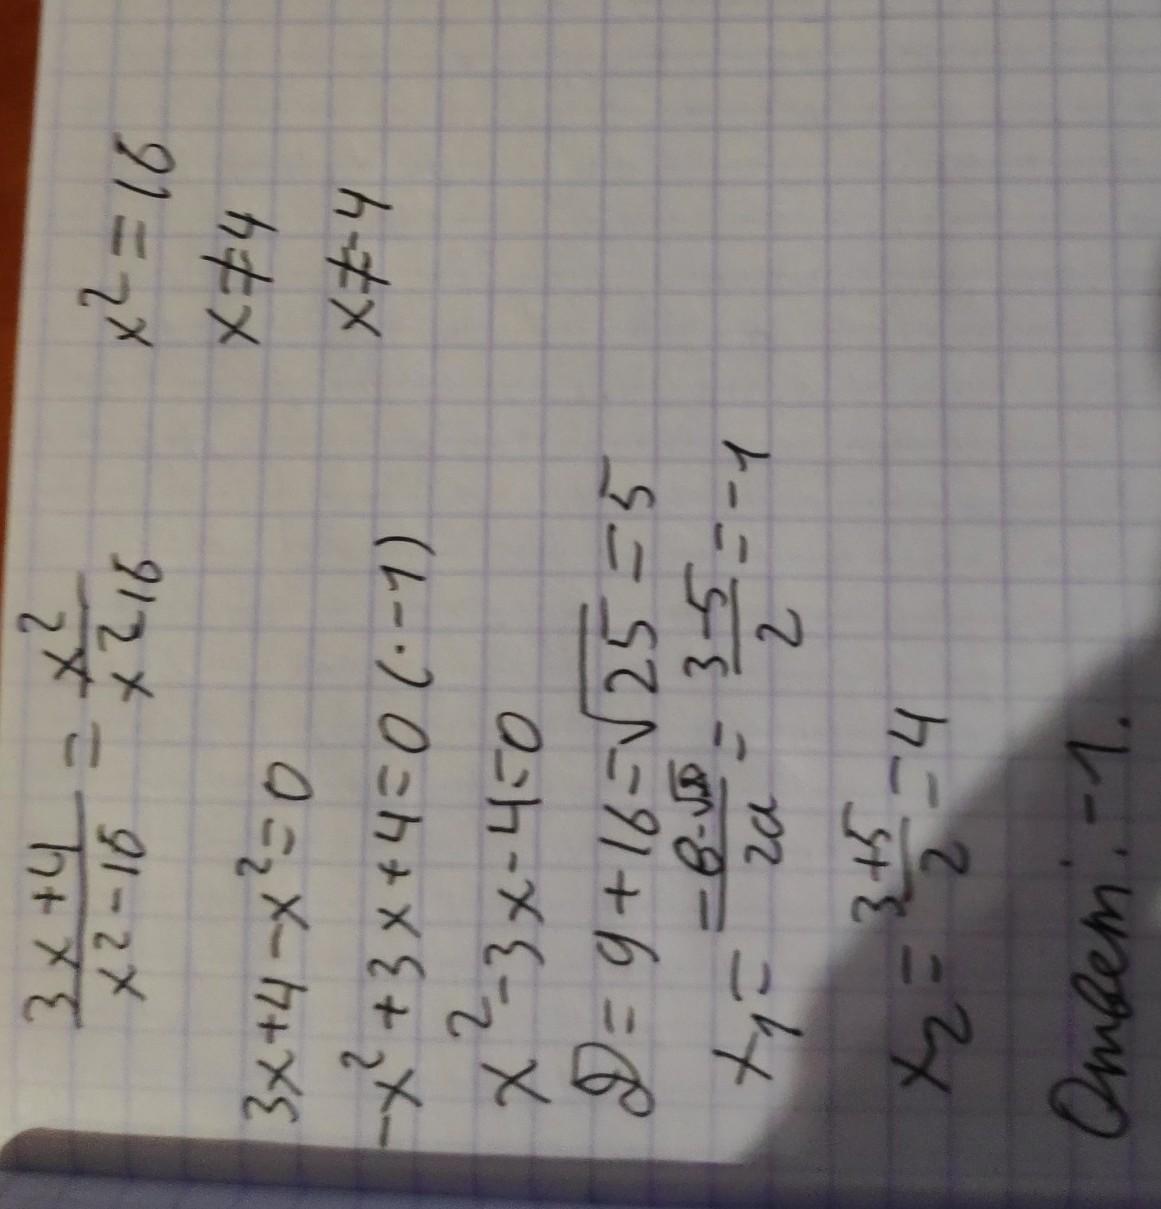 (3x+4)/(x²-16) = x²/(x²-16)
x²=16
x≠4
x≠-4
3x+4-x²=0
-x²+3x+4=0 (·-1)
x²-3x-4=0
D=9+16=√25=5
x₁=(-в-√D)/2a=(3-5)/2=-1
x₂=(3+5)/2=4
Ответ: -1.